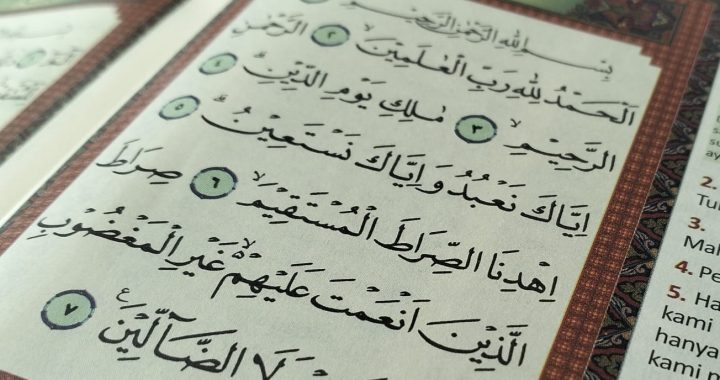 بِسْمِ اللهِ الرَّحْمٰنِ الرَّحِيْمِ
اَلْحَمْدُ لِلّٰهِ رَبِّ الْعٰلَمِيْنَۙ ٢ الرَّحْمٰنِ
الرَّحِيْمِۙ ٣ مٰلِكِ يَوْمِ الدِّيْنِۗ ٤
اِيَّاكَ نَعْبُدُ وَاِيَّاكَ نَسْتَعِيْنُۗ ٥
اِهْدِنَا الصِّرَاطَ الْمُسْتَقِيْمَۙ ٦ صِرَاطَ
الَّذِيْنَ اَنْعَمْتَ عَلَيْهِمْ ەۙ غَيْرِ الْمَغْضُوْبِ
لَا الضَّآلِّيْنَ ࣖ ٧
2.
Tu
3.
Mal
4. Pe
5. Ha
kami
hanya
kami